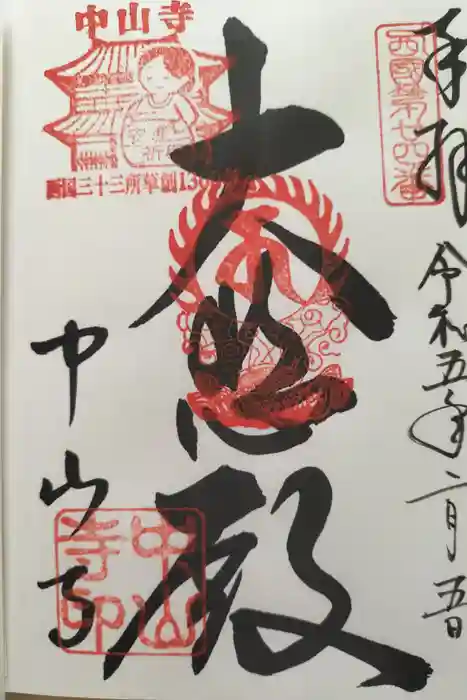 奉拝
令和五年二月五日
西國第二十四番
大悲殿
中山寺
西国三十三所草創1300年
安産
祈願
中山寺
中山寺印